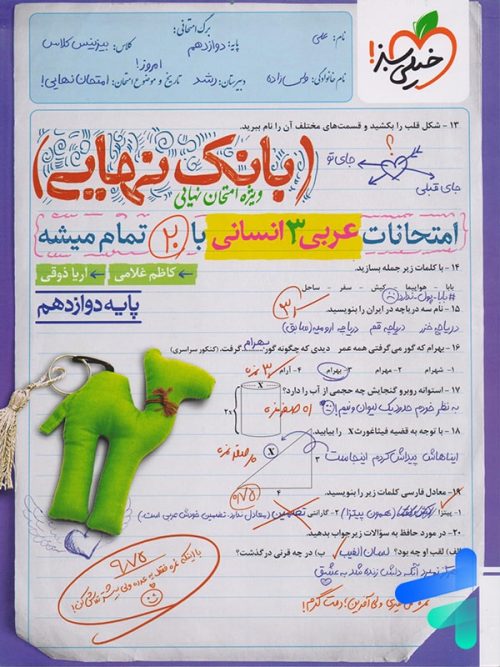 خیلی سبز!
برگ امتحانی:
نام: علی
پایه: دوازدهم
کلاس: بیزینس کلاس
امروز!
نام خانوادگی: ولی‌زاده
دبیرستان: رشد
تاریخ و موضوع امتحان: امتحان نهایی!
۱۳ - شکل قلب را بکشید و قسمت‌های مختلف آن را نام ببرید.
جای تو
؟
جای قبلی
(بانک نهایی)
ویژه امتحان نهایی
امتحانات عربی ۳ انسانی با ۲۰ تمام میشه
کاظم غلامی
آریا ذوقی
پایه دوازدهم
۱۴ - با کلمات زیر جمله بسازید.
بابا - هواپیما - کیش - سفر - ساحل
#بابا_پول_نداره
۱۵ - نام سه دریاچه در ایران را بنویسید.
دریاچه خزر دریاچه قم دریاچه ارومیه (سابق)
۱۶ - بهرام که گور می‌گرفتی همه عمر دیدی که چگونه گور بهرام گرفت. (کنکور سراسری)
۱- شهرام ۲- مهرام ۳- بهرام ۴- آرام
۱۷ - استوانه روبرو گنجایش چه حجمی از آب را دارد؟
X
2x
به نظر خودم حدود یک لیوان و نیم!
۱۸ - با توجه به قضیه فیثاغورث X را بیابید.
ایناهاش پیداش کردم اینجاست
X
۳
۴
۱۹ - معادل فارسی کلمات زیر را بنویسید.
۱- پیتزا (همون پیتزا) ۲- گارانتی تضمین (معادل ندارد. تضمین خودش عربی است.)
۲۰ - در مورد حافظ به سؤالات زیر جواب بدهید.
الف) لقب او چه بود؟ لسان الغیب ب) در چه قرنی درگذشت؟
هرگز نمیرد آنکه دلش زنده شد به عشق
۹۸/۵